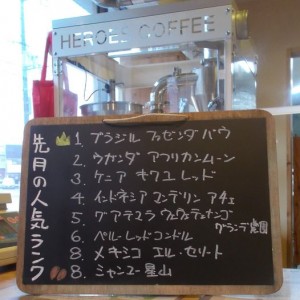 HEROES COFFEE
先月の人気ランク
1. ブラジル ファゼンダ バウ
2. ウガンダ アフリカンムーン
3. ケニア キクユ レッド
4. インドネシア マンデリン アチェ
5. グアテマラ ウエウエテナンゴ
グランデ農園
6. ペルー レッドコンドル
8. メキシコ エル・セリート
8. ミャンマー 星山